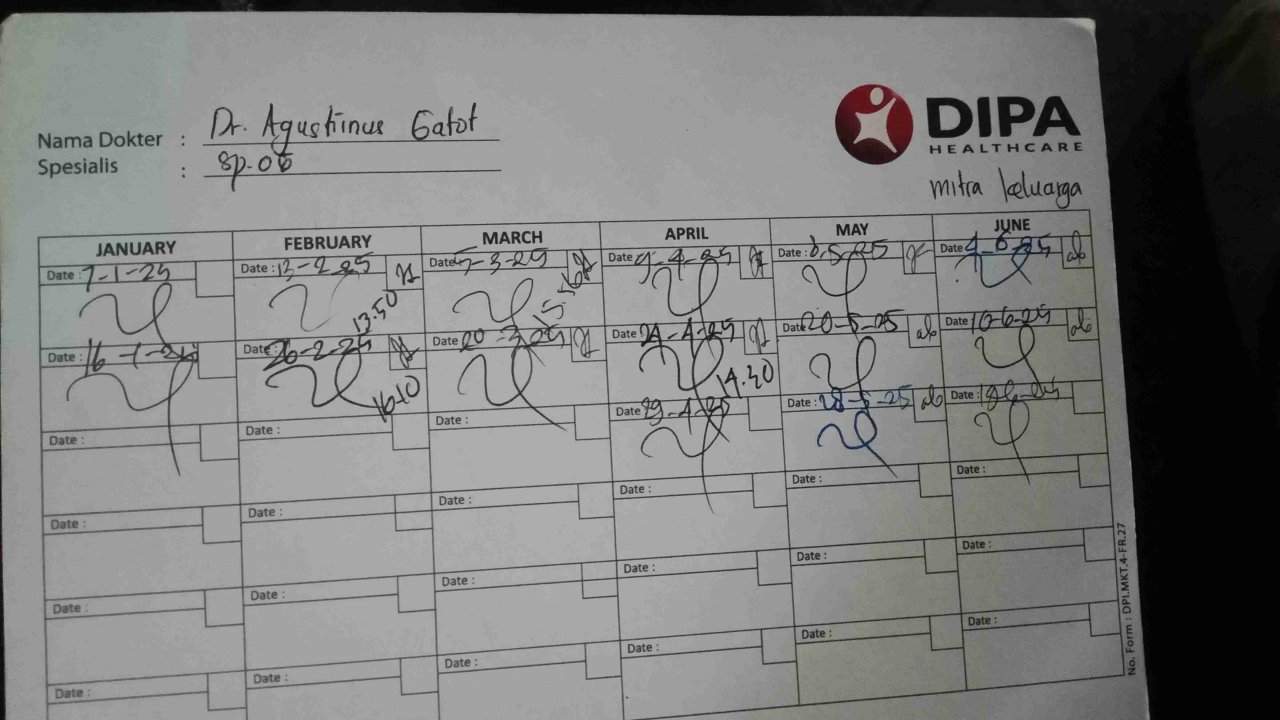 DIPA
HEALTHCARE
Nama Dokter : Dr. Agustinus Gatot
Spesialis : Sp.OG
mitra keluarga
JANUARY FEBRUARY MARCH APRIL MAY JUNE
Date : 7-1-25 Date : 12-2-25 Date : 5-3-25 Date : 9-4-25 Date : 6-5-25 Date : 4-6-25
13.50
Date : 16-1-25 Date : 26-2-25 Date : 20-3-25 Date : 24-4-25 Date : 20-5-25 Date : 10-6-25
16.10 14.30
Date : Date : Date : Date : 29-4-25 Date : 28-5-25 Date :
Date : Date : Date : Date : Date : Date :
Date : Date : Date : Date : Date : Date :
Date : Date : Date : Date : Date :
No. Form : DPI.MKT.4-FR.27